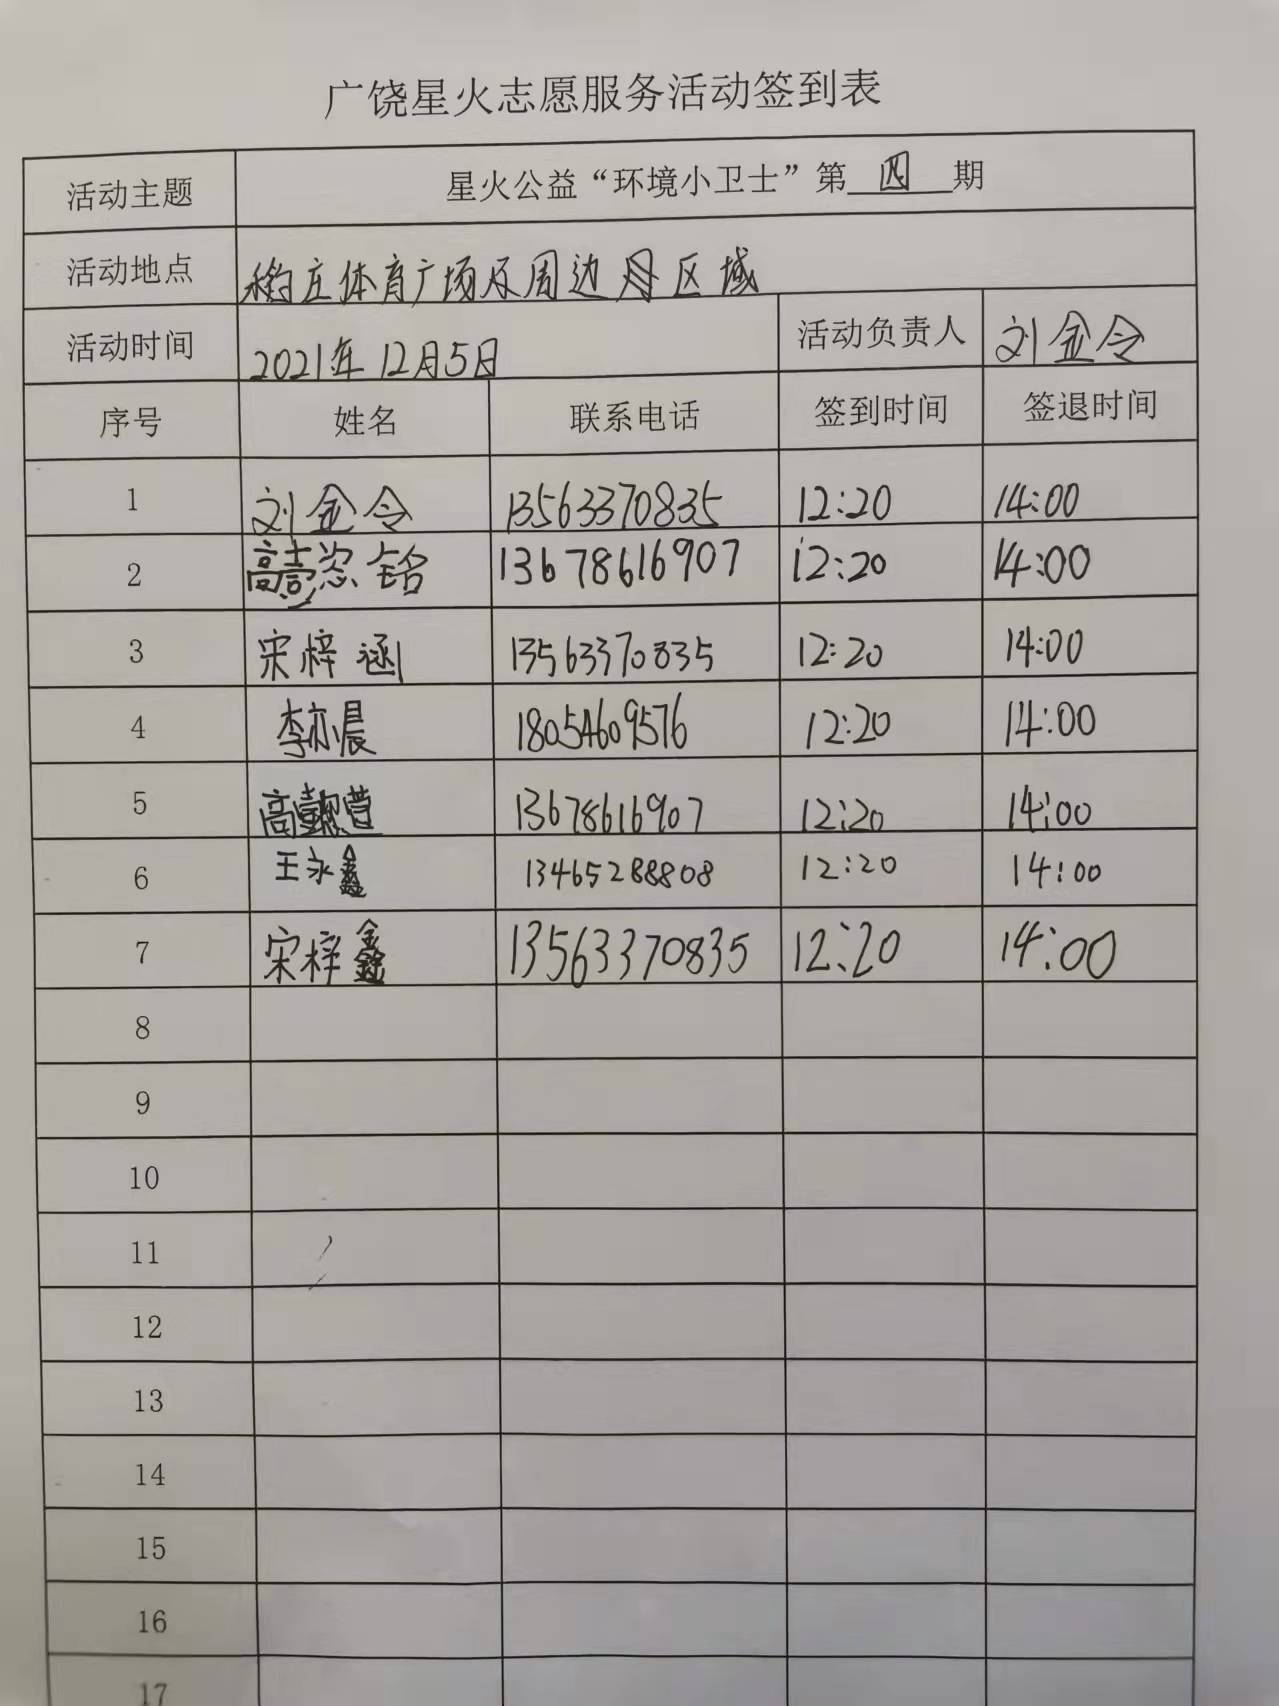 广饶星火志愿服务活动签到表
活动主题 星火公益“环境小卫士”第 四 期
活动地点 稻庄体育广场及周边 区域
活动时间 2021年12月5日 活动负责人 刘金令
序号 姓名 联系电话 签到时间 签退时间
1 刘金令 13563370835 12:20 14:00
2 高 铭 13678616907 12:20 14:00
3 宋梓涵 13563370835 12:20 14:00
4 李亦晨 18054609576 12:20 14:00
5 高 萱 13678616907 12:20 14:00
6 王永鑫 13465288808 12:20 14:00
7 宋梓鑫 13563370835 12:20 14:00
8
9
10
11
12
13
14
15
16
17